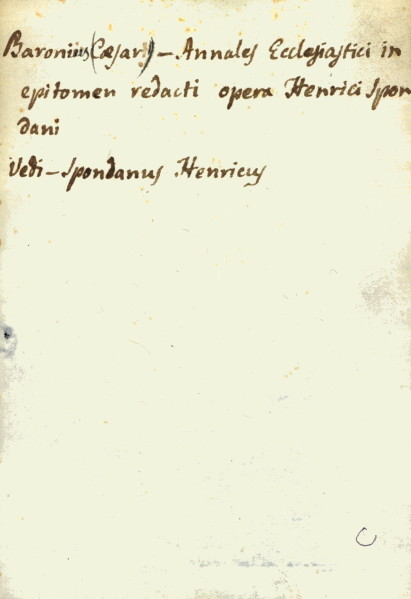 Baronius (Cæsar) - Annales Ecclesiastici in
epitomen redacti opera Henrici Spon
dani
Vedi - Spondanus Henricus
C